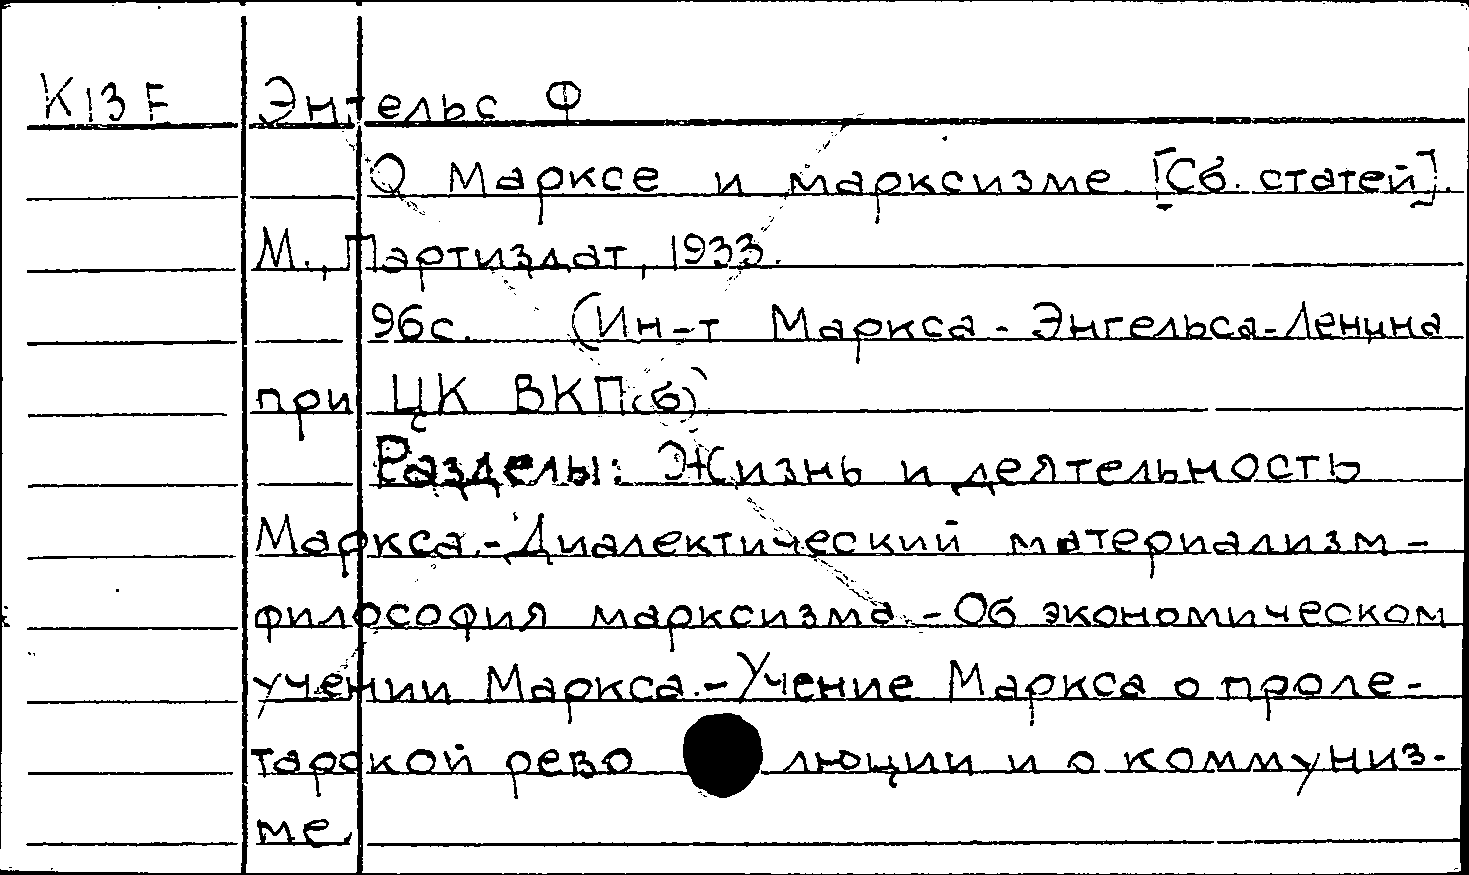 К13 Е Энгельс Ф
О Марксе и марксизме. [Сб. статей].
М., Партиздат, 1933.
96с. (Ин-т Маркса-Энгельса-Ленина
при ЦК ВКП(б))
Разделы: Жизнь и деятельность
Маркса.-Диалектический материализм -
философия марксизма -Об экономическом
учении Маркса.-Учение Маркса о проле-
тарской рево люции и о коммуниз-
ме.